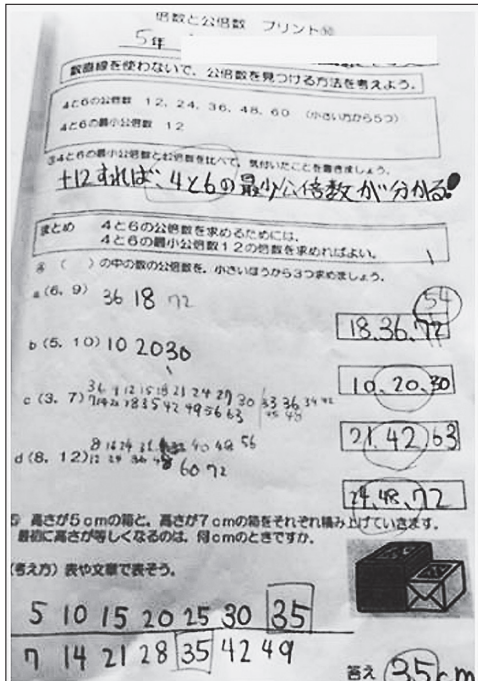 倍数と公倍数 プリント⑩
5年
数直線を使わないで、公倍数を見つける方法を考えよう。
4と6の公倍数 12、24、36、48、60 (小さい方から5つ)
4と6の最小公倍数 12
③4と6の最小公倍数と公倍数を比べて、気付いたことを書きましょう。
+12すれば、4と6の最少公倍数が分かる!
まとめ 4と6の公倍数を求めるためには、
4と6の最小公倍数12の倍数を求めればよい。
④ ( )の中の数の公倍数を、小さいほうから3つ求めましょう。
54
a (6、9) 36 18 72
18.36.72
b (5、10) 10 20 30
10.20.30
c (3、7) 3 6 9 12 15 18 21 24 27 30 33 36
7 14 21 28 35 42 49 56 63
21.42.63
8 16 24 32 40 48 56
d (8、12) 12 24 36 48 60 72
24.48.72
⑤ 高さが5cmの箱と、高さが7cmの箱をそれぞれ積み上げていきます。
最初に高さが等しくなるのは、何cmのときですか。
(考え方) 表や文章で表そう。
5 10 15 20 25 30 35
7 14 21 28 35 42 49
答え 35cm